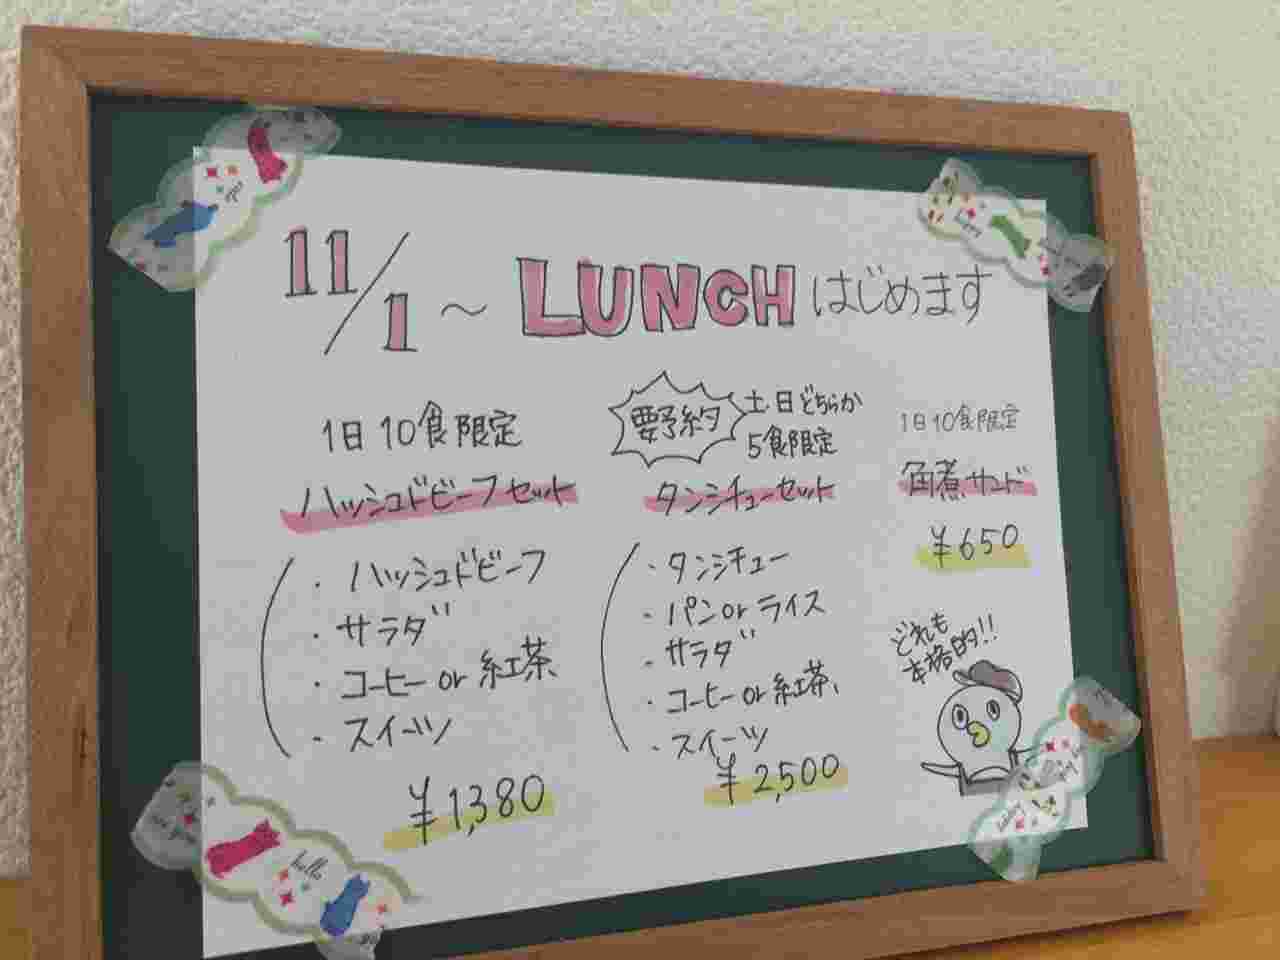 11/1～ LUNCH はじめます
1日10食限定
ハッシュドビーフセット
・ハッシュドビーフ
・サラダ
・コーヒー or 紅茶
・スイーツ
¥1,380
要予約
土・日どちらか
5食限定
タンシチューセット
・タンシチュー
・パン or ライス
・サラダ
・コーヒー or 紅茶
・スイーツ
¥2,500
1日10食限定
角煮サンド
¥650
どれも
本格的!!
happy
hello